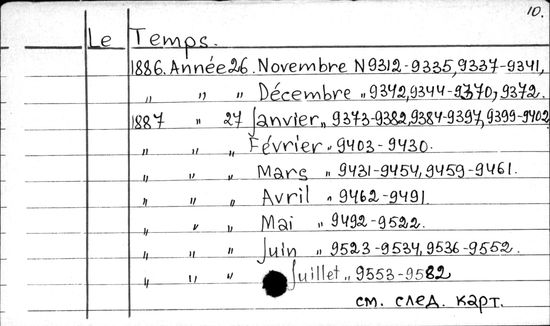 10.
Le Temps.
1886. Année 26. Novembre N 9312-9335, 9337-9341,
„ „ „ Décembre „ 9342, 9344-9370, 9372.
1887 „ 27 Janvier „ 9373-9382, 9384-9397, 9399-9402
„ „ „ Février „ 9403-9430.
„ „ „ Mars „ 9431-9454, 9459-9461.
„ „ „ Avril „ 9462-9491.
„ „ „ Mai „ 9492-9522.
„ „ „ Juin „ 9523-9534, 9536-9552.
„ „ „ Juillet „ 9553-9582
см. след. карт.